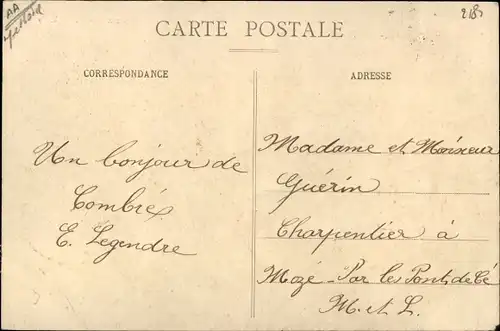 AA
2185
CARTE POSTALE
CORRESPONDANCE
ADRESSE
Un bonjour de
Combrée
E. Legendre
Madame et Monsieur
Guérin
Charpentier à
Mozé - Par les Ponts de Cé
M. et L.